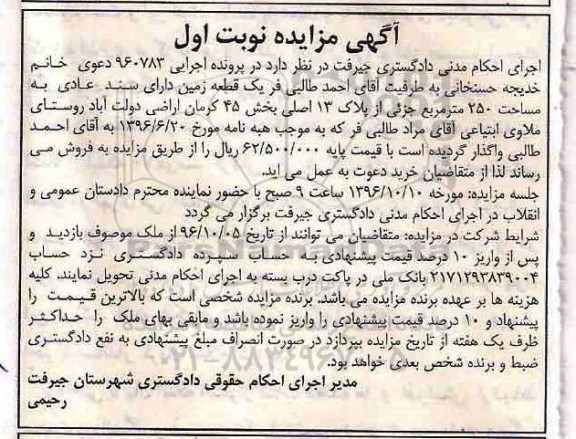 آگهی مزایده نوبت اول
اجرای احکام مدنی دادگستری جیرفت در نظر دارد در پرونده اجرایی ۹۶۰۷۸۳ دعوی خانم
خدیجه حسنخانی به طرفیت آقای احمد طالبی فر یک قطعه زمین دارای سند عادی به
مساحت ۲۵۰ مترمربع جزئی از پلاک ۱۳ اصلی بخش ۴۵ کرمان اراضی دولت آباد روستای
ملاوی ابتیاعی آقای مراد طالبی فر که به موجب هبه نامه مورخ ۱۳۹۶/۶/۲۰ به آقای احمد
طالبی واگذار گردیده است با قیمت پایه ۶۲/۵۰۰/۰۰۰ ریال را از طریق مزایده به فروش می
رساند لذا از متقاضیان خرید دعوت به عمل می آید.
جلسه مزایده: مورخه ۱۳۹۶/۱۰/۱۰ ساعت ۹ صبح با حضور نماینده محترم دادستان عمومی و
انقلاب در اجرای احکام مدنی دادگستری جیرفت برگزار می گردد
شرایط شرکت در مزایده: متقاضیان می توانند از تاریخ ۹۶/۱۰/۰۵ از ملک موصوف بازدید و
پس از واریز ۱۰ درصد قیمت پیشنهادی به حساب سپرده دادگستری نزد حساب
۲۱۷۱۲۹۳۸۳۹۰۰۴ بانک ملی در پاکت درب بسته به اجرای احکام مدنی تحویل نمایند. کلیه
هزینه ها بر عهده برنده مزایده می باشد. برنده مزایده شخصی است که بالاترین قیمت را
پیشنهاد و ۱۰ درصد قیمت پیشنهادی را واریز نموده باشد و مابقی بهای ملک را حداکثر
ظرف یک هفته از تاریخ مزایده بپردازد در صورت انصراف مبلغ پیشنهادی به نفع دادگستری
ضبط و برنده شخص بعدی خواهد بود.
مدیر اجرای احکام حقوقی دادگستری شهرستان جیرفت
رحیمی